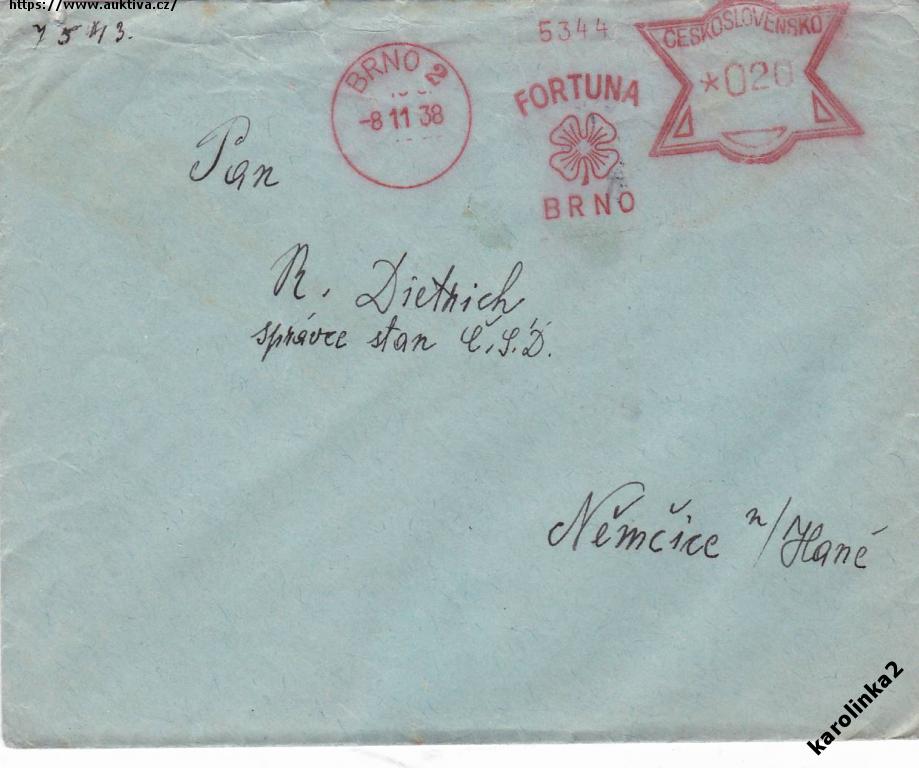 https://www.auktiva.cz/
7543.
5344
BRNO 2
-8 11 38
FORTUNA
BRNO
ČESKOSLOVENSKO
*020
Pan
R. Dietrich
správce stan Č.S.D.
Němčice n/Hané
karolinka2